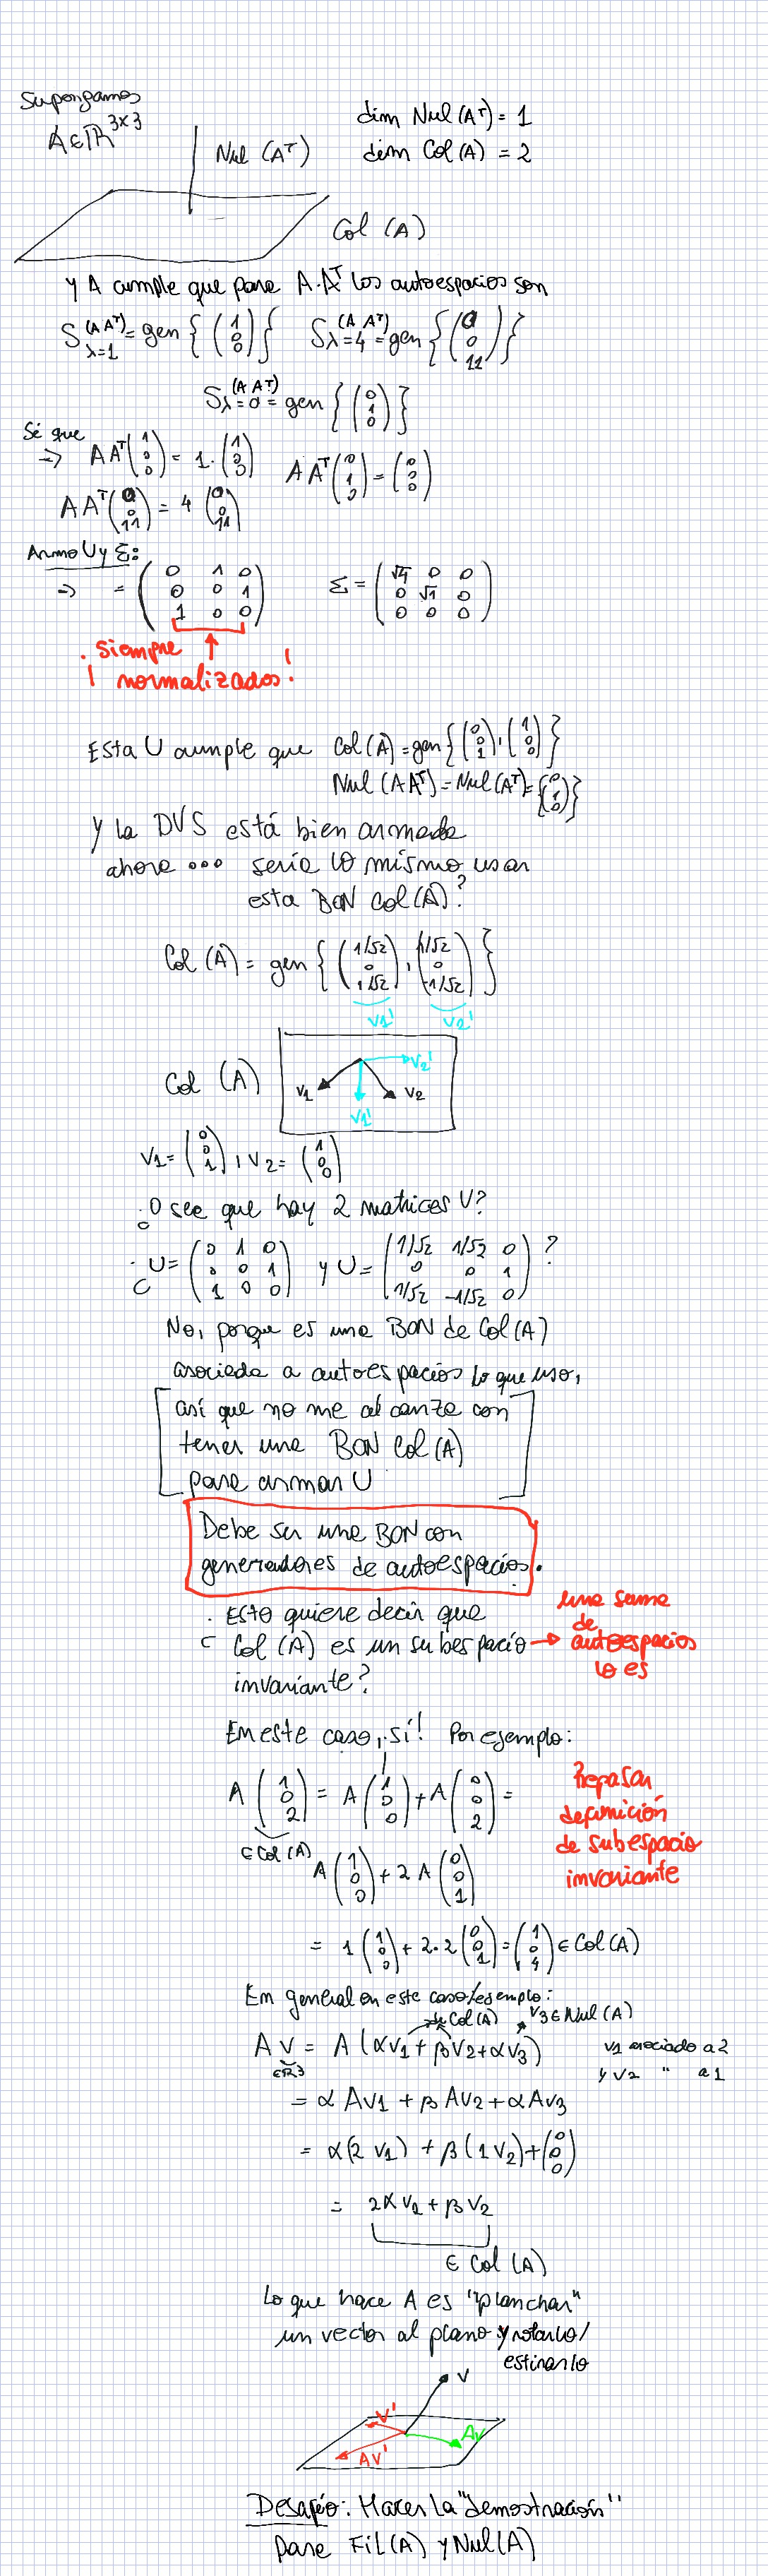 Supongamos
A∈ℝ^{3×3}
dim Nul(Aᵀ) = 1
dim Col(A) = 2
Nul (Aᵀ)
Col (A)
y A cumple que para A.Aᵀ los autoespacios son
S_{λ=1}^{(AAᵀ)} = gen {(1 0 0)} S_{λ=4}^{(A Aᵀ)} = gen {(0 0 11)}
S_{λ=0}^{(A Aᵀ)} = gen {(0 1 0)}
Sé que
=> AAᵀ(1 0 0) = 1.(1 0 0) AAᵀ(0 1 0) = (0 0 0)
AAᵀ(0 0 11) = 4 (0 0 11)
Armo U y Σ:
=> = (0 1 0 / 0 0 1 / 1 0 0) Σ = (√4 0 0 / 0 √1 0 / 0 0 0)
¡ siempre
normalizados!
Esta U cumple que Col(A) = gen{(0 0 1), (1 0 0)}
Nul(AAᵀ) = Nul(Aᵀ) = {(0 1 0)}
y la DVS está bien armada
ahora ... sería lo mismo usar
esta BON Col(A)?
Col (A) = gen {(1/√2 0 1/√2), (1/√2 0 -1/√2)}
v1' v2'
Col (A)
v1 v2 v2'
v1'
v1 = (0 0 1), v2 = (1 0 0)
¿O sea que hay 2 matrices U?
¿U = (0 1 0 / 0 0 1 / 1 0 0) y U = (1/√2 1/√2 0 / 0 0 1 / 1/√2 -1/√2 0)?
No, porque es una BON de Col(A)
asociada a autoespacios lo que uso,
así que no me alcanza con
tener una BON Col(A)
para armar U
Debe ser una BON con
generadores de autoespacios.
¿Esto quiere decir que
Col (A) es un subespacio
invariante?
→ una suma
de
autoespacios
lo es
En este caso, sí! Por ejemplo:
A (1 0 2) = A(1 0 0) + A(0 0 2) =
∈ Col (A)
A(1 0 0) + 2 A(0 0 1)
Repasar
definición
de subespacio
invariante
= 1(1 0 0) + 2.2(0 0 1) = (1 0 4) ∈ Col(A)
En general en este caso/ejemplo:
de Col(A) v3 ∈ Nul(A)
A v = A (αv1 + βv2 + αv3)
∈ℝ3
v1 asociado a 2
y v2 " a 1
= α Av1 + β Av2 + α Av3
= α(2 v1) + β(1 v2) + (0 0 0)
= 2α v1 + β v2
∈ Col (A)
Lo que hace A es "planchar"
un vector al plano y rotarlo/
estirarlo
v
v'
Av
Av'
Desafío: Hacer la "demostración"
para Fil(A) y Nul(A)